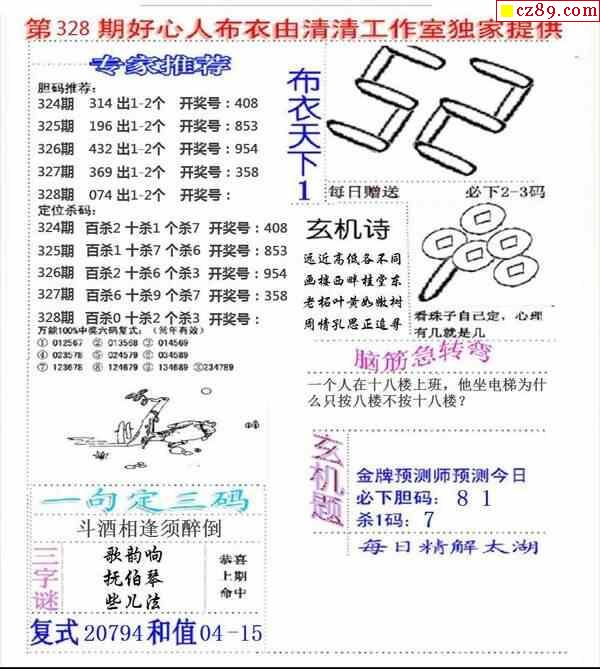 cz89.com
第328期好心人布衣由清清工作室独家提供
专家推荐
胆码推荐:
324期 314 出1-2个 开奖号:408
325期 196 出1-2个 开奖号:853
326期 432 出1-2个 开奖号:954
327期 369 出1-2个 开奖号:358
328期 074 出1-2个 开奖号:
定位杀码:
324期 百杀2 十杀1 个杀7 开奖号:408
325期 百杀1 十杀7 个杀6 开奖号:853
326期 百杀2 十杀6 个杀3 开奖号:954
327期 百杀6 十杀9 个杀7 开奖号:358
328期 百杀0 十杀2 个杀3 开奖号:
万能100%中奖六码复式:(常年有效)
①012567 ②013568 ③014569
④023578 ⑤024579 ⑥034589
⑦123678 ⑧124679 ⑨134689 ⑩234789
布衣天下1
52
每日赠送 必下2-3码
玄机诗
远近高低各不同
画楼西畔桂堂东
老柘叶黄如嫩树
周情孔思正追寻
看珠子自己定,心理
有几就是几
脑筋急转弯
一个人在十八楼上班,他坐电梯为什
么只按八楼不按十八楼?
一句定三码
斗酒相逢须醉倒
三字谜
歌韵响
抚伯琴
些儿法
恭喜
上期
命中
玄机题
金牌预测师预测今日
必下胆码: 8 1
杀1码: 7
每日精解太湖
复式 20794 和值 04-15